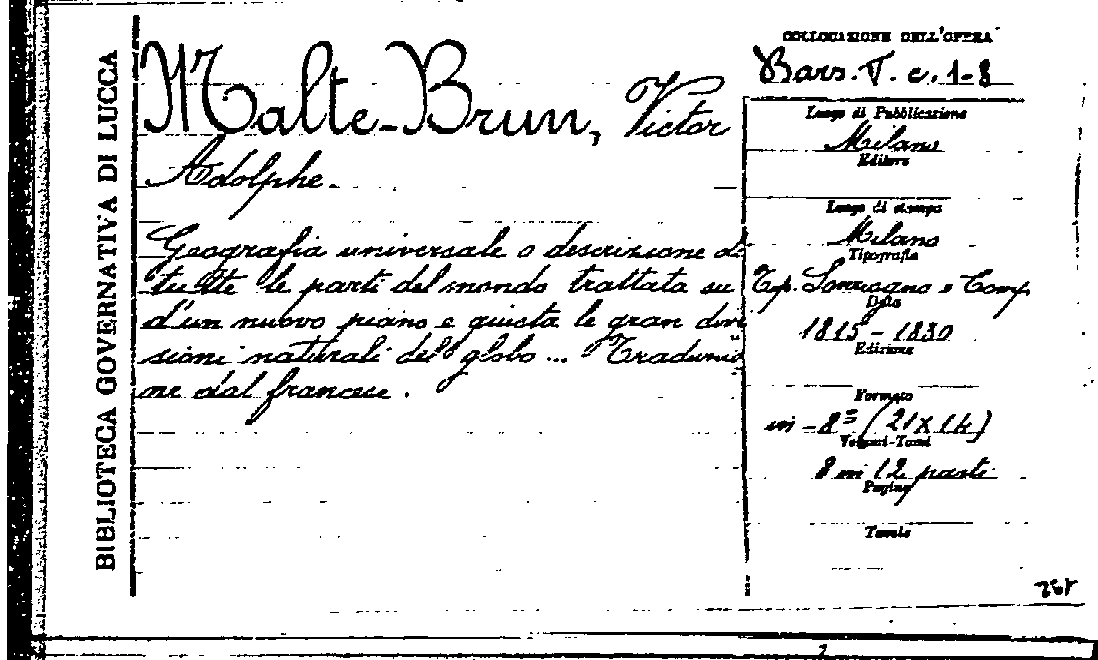 BIBLIOTECA GOVERNATIVA DI LUCCA
Malte-Brun, Victor
Adolphe.
Geografia universale o descrizione di
tutte le parti del mondo trattata su
d'un nuovo piano e giusta le gran divi
sioni naturali del globo ... Traduzio
ne dal francese.
COLLOCAZIONE DELL'OPERA
Bars. T. c. 1-8
Luogo di Pubblicazione
Milano
Editore
Luogo di stampa
Milano
Tipografia
Tip. Sonzogno e Comp.
Data
1815-1830
Edizione
Formato
in-8° (21x14)
Volumi-Tomi
8 in 12 parti
Pagine
Tavole